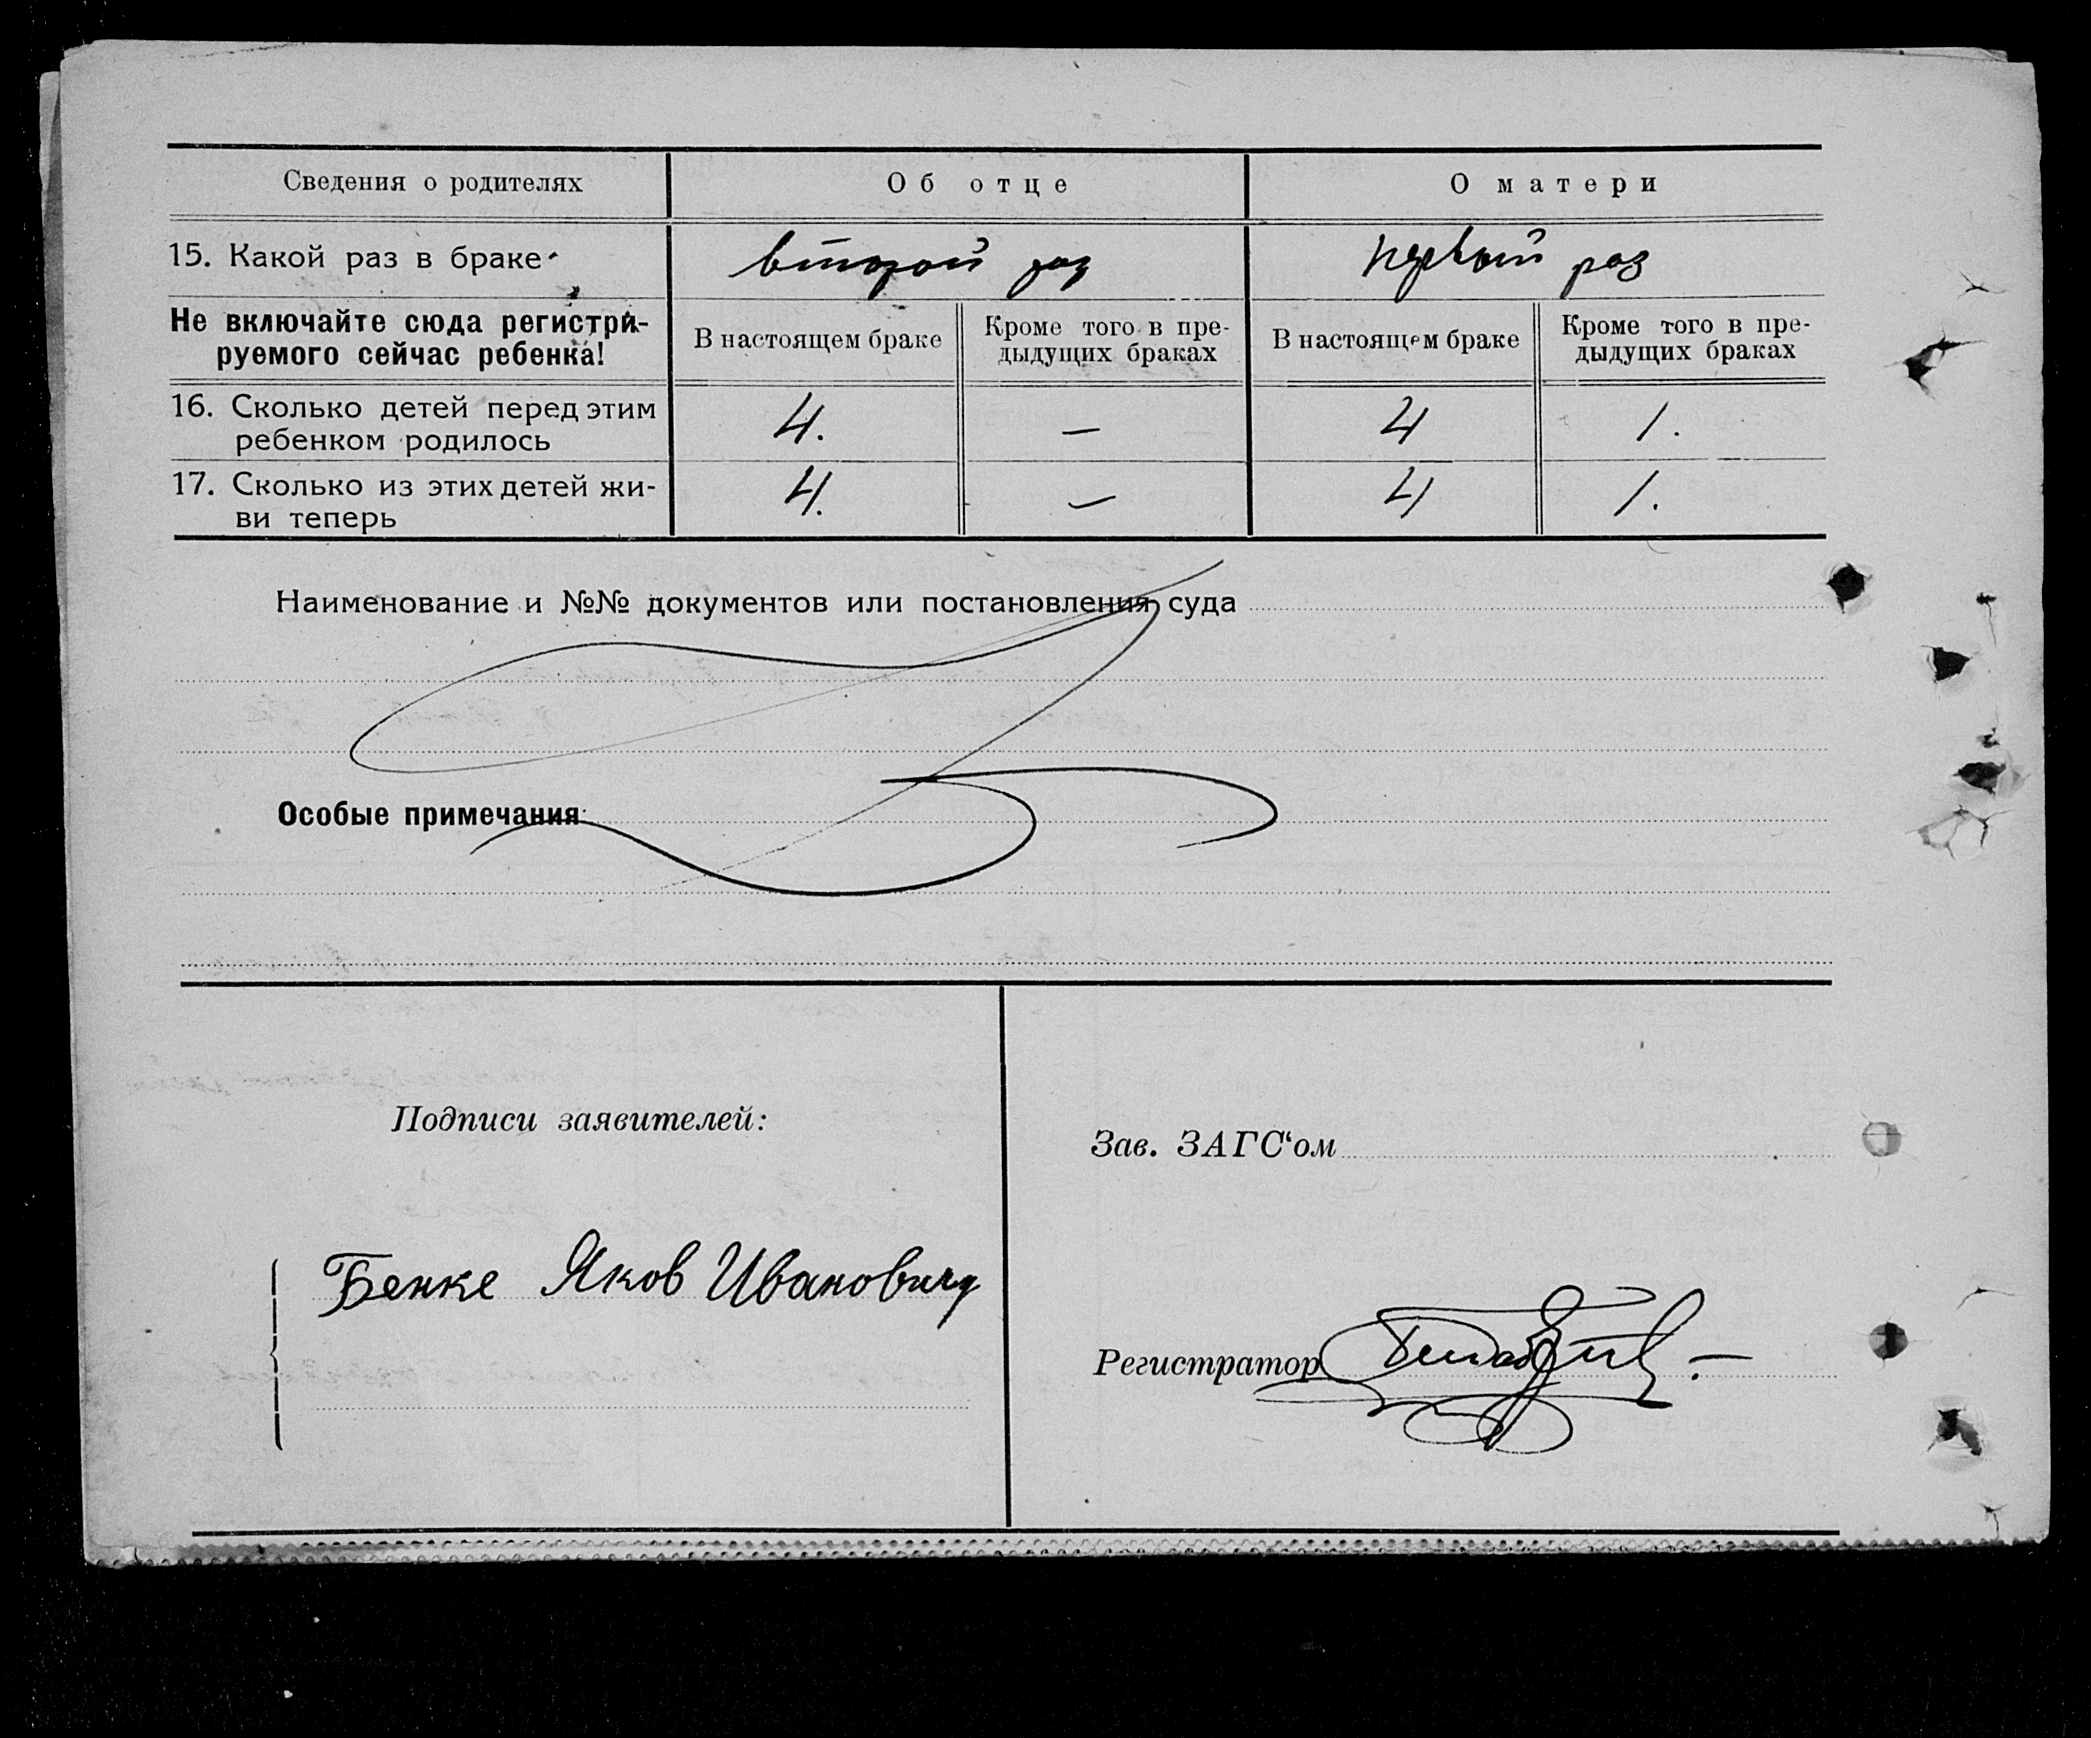 Сведения о родителях Об отце О матери
15. Какой раз в браке второй раз первый раз
Не включайте сюда регистри-
руемого сейчас ребенка!
В настоящем браке Кроме того в пре-
дыдущих браках
В настоящем браке Кроме того в пре-
дыдущих браках
16. Сколько детей перед этим
ребенком родилось 4. — 4 1.
17. Сколько из этих детей жи-
ви теперь 4. — 4 1.
Наименование и №№ документов или постановления суда
Особые примечания:
Подписи заявителей:
Зав. ЗАГС‘ом
Бенке Яков Иванович
Регистратор